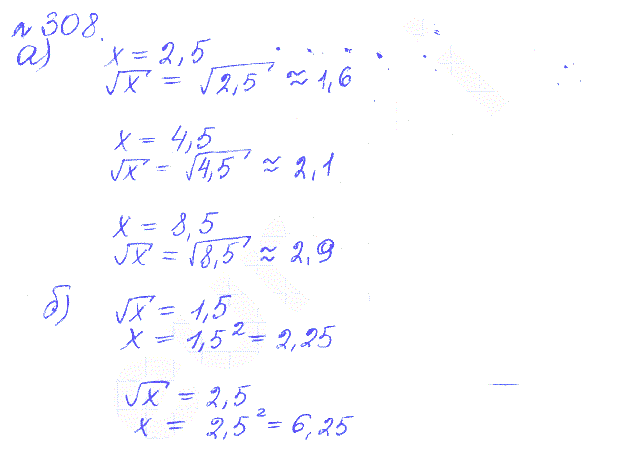 №308.
а) x = 2,5
√x = √2,5 ≈ 1,6
x = 4,5
√x = √4,5 ≈ 2,1
x = 8,5
√x = √8,5 ≈ 2,9
б) √x = 1,5
x = 1,5² = 2,25
√x = 2,5
x = 2,5² = 6,25